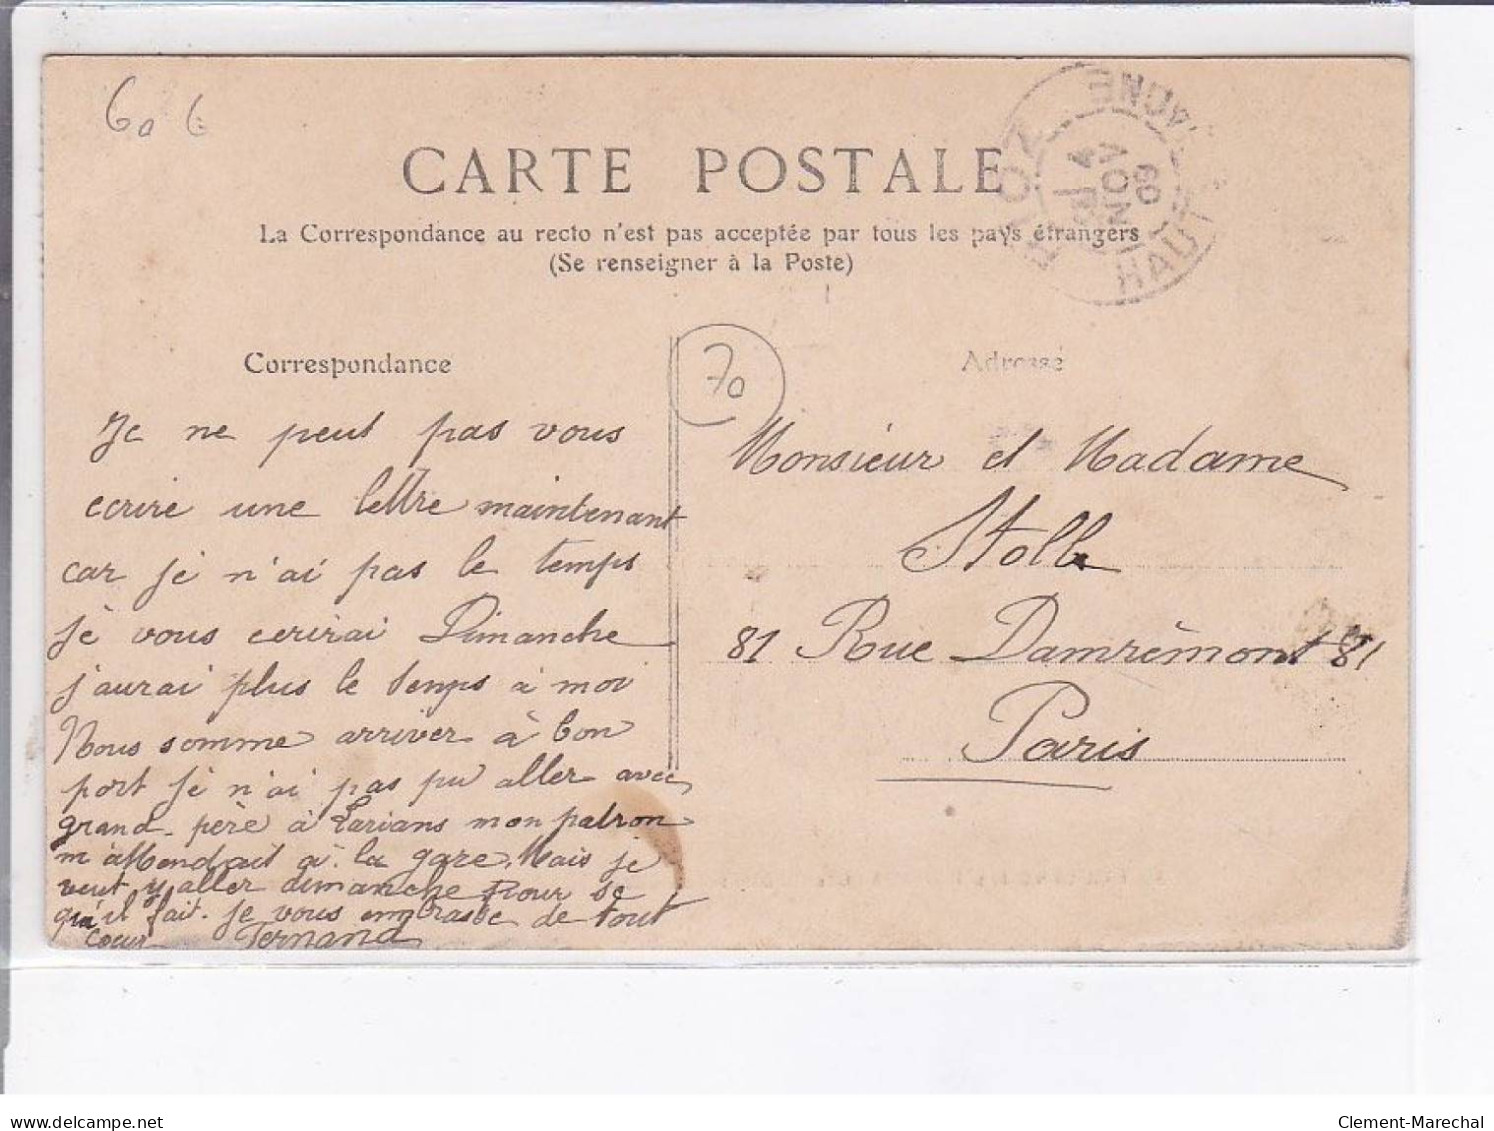 60 6
CARTE POSTALE
La Correspondance au recto n'est pas acceptée par tous les pays étrangers
(Se renseigner à la Poste)
RIOZ
4
NOV
09
HAUTE SAONE
Correspondance
70
Adresse
Je ne peut pas vous
ecrire une lettre maintenant
car je n'ai pas le temps
je vous ecrirai Dimanche
j'aurai plus le temps à moi
Nous somme arriver à bon
port je n'ai pas pu aller avec
grand-père à Larians mon patron
m'attendait à la gare. Mais je
veut y aller dimanche Pour se
qu'il fait. je vous embrasse de tout
coeur Fernand
Monsieur et Madame
Stoll
81 Rue Damrèmont 81
Paris
delcampe.net
Clement-Marechal